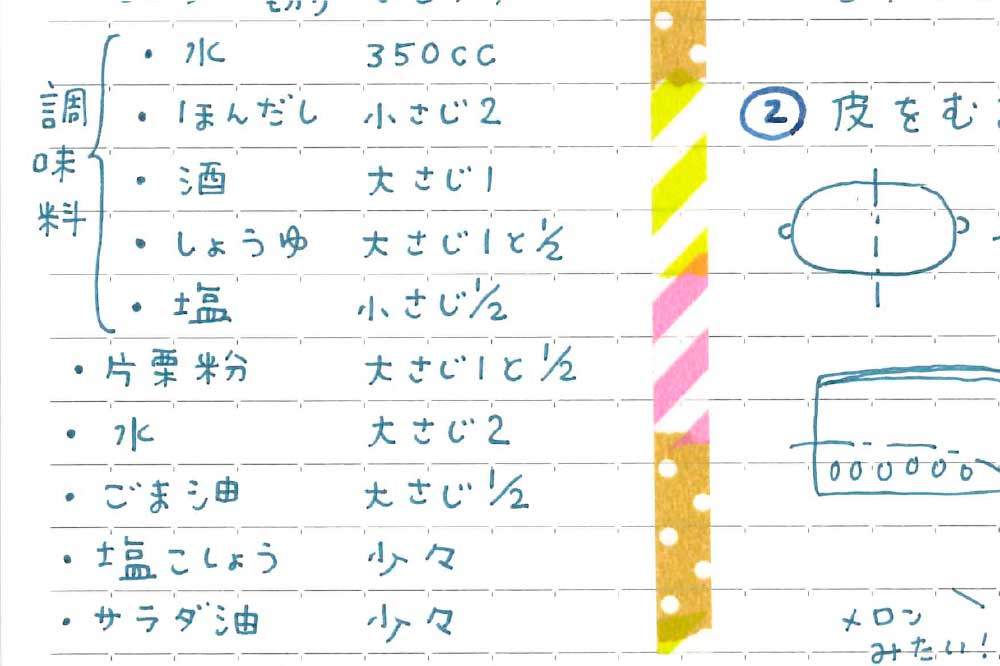 調味料
・水 350cc
・ほんだし 小さじ2
・酒 大さじ1
・しょうゆ 大さじ1と1/2
・塩 小さじ1/2
・片栗粉 大さじ1と1/2
・水 大さじ2
・ごま油 大さじ1/2
・塩こしょう 少々
・サラダ油 少々
② 皮をむ
メロン
みたい!